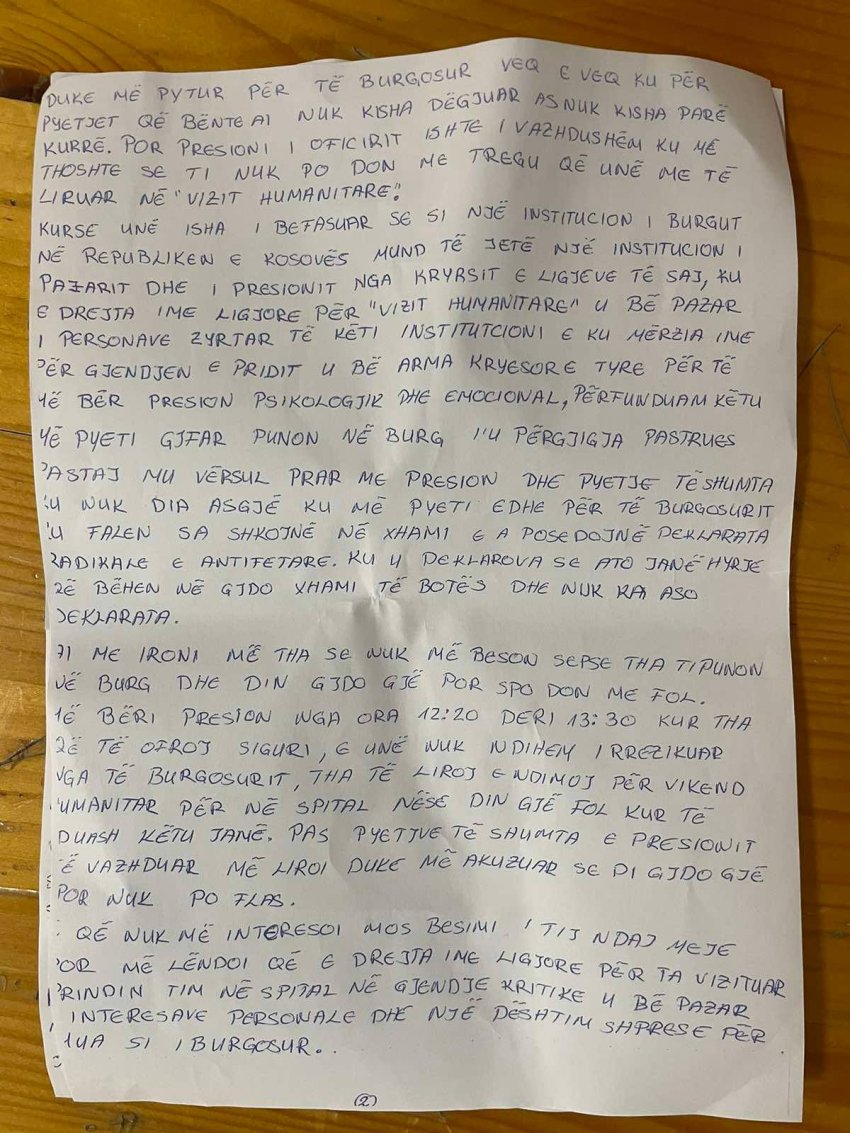 DUKE MË PYTUR PËR TË BURGOSUR VEQ E VEQ KU PËR
PYETJET QË BËNTE AI NUK KISHA DËGJUAR AS NUK KISHA PARË
KURRË. POR PRESIONI I OFICIRIT ISHTE I VAZHDUSHËM KU MË
THOSHTE SE TI NUK PO DON ME TREGU QË UNË ME TË
LIRUAR NË "VIZIT HUMANITARE".
KURSE UNË ISHA I BEFASUAR SE SI NJË INSTITUCION I BURGUT
NË REPUBLIKEN E KOSOVËS MUND TË JETË NJË INSTITUCION I
PAZARIT DHE I PRESIONIT NGA KRYRSIT E LIGJEVE TË SAJ, KU
E DREJTA IME LIGJORE PËR "VIZIT HUMANITARE" U BË PAZAR
I PERSONAVE ZYRTAR TË KËTI INSTITUTCIONI E KU MËRZIA IME
PËR GJENDJEN E PRIDIT U BË ARMA KRYESORE TYRE PËR TË
MË BËR PRESION PSIKOLOGJIK DHE EMOCIONAL, PËRFUNDUAM KËTU
MË PYETI GJFAR PUNON NË BURG I'U PËRGJIGJA PASTRUES
PASTAJ MU VËRSUL PRAR ME PRESION DHE PYETJE TË SHUMTA
KU NUK DIA ASGJË KU MË PYETI EDHE PËR TË BURGOSURIT
KU FALEN SA SHKOJNË NË XHAMI E A POSEDOJNË DEKLARATA
RADIKALE E ANTIFETARE. KU U DEKLAROVA SE ATO JANË HYRJE
QË BËHEN NË GJDO XHAMI TË BOTËS DHE NUK KA ASO
DEKLARATA.
AI ME IRONI MË THA SE NUK MË BESON SEPSE THA TI PUNON
NË BURG DHE DIN GJDO GJË POR SPO DON ME FOL.
MË BËRI PRESION NGA ORA 12:20 DERI 13:30 KUR THA
QË TË OFROJ SIGURI, E UNË NUK NDIHEM I RREZIKUAR
NGA TË BURGOSURIT, THA TË LIROJ E NDIMOJ PËR VIKEND
HUMANITAR PËR NË SPITAL NËSE DIN GJË FOL KUR TË
DUASH KËTU JANË. PAS PYETJVE TË SHUMTA E PRESIONIT
TË VAZHDUAR MË LIROI DUKE MË AKUZUAR SE DI GJDO GJË
POR NUK PO FLAS.
QË NUK MË INTERESOI MOS BESIMI I TIJ NDAJ MEJE
POR MË LËNDOI QË E DREJTA IME LIGJORE PËR TA VIZITUAR
PRINDIN TIM NË SPITAL NË GJENDJE KRITIKE U BË PAZAR
I INTERESAVE PERSONALE DHE NJË DËSHTIM SHPRESE PËR
MUA SI I BURGOSUR..
(2)